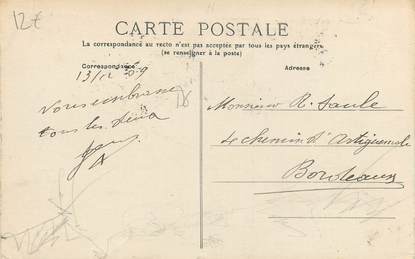 12€
CARTE POSTALE
La correspondance au recto n'est pas acceptée par tous les pays étrangers
(se renseigner à la poste)
Correspondance
Adresse
13/12
Vous embrasse
tous les deux
Monsieur R. Saule
Le chemin d'Artiguemale
Bordeaux